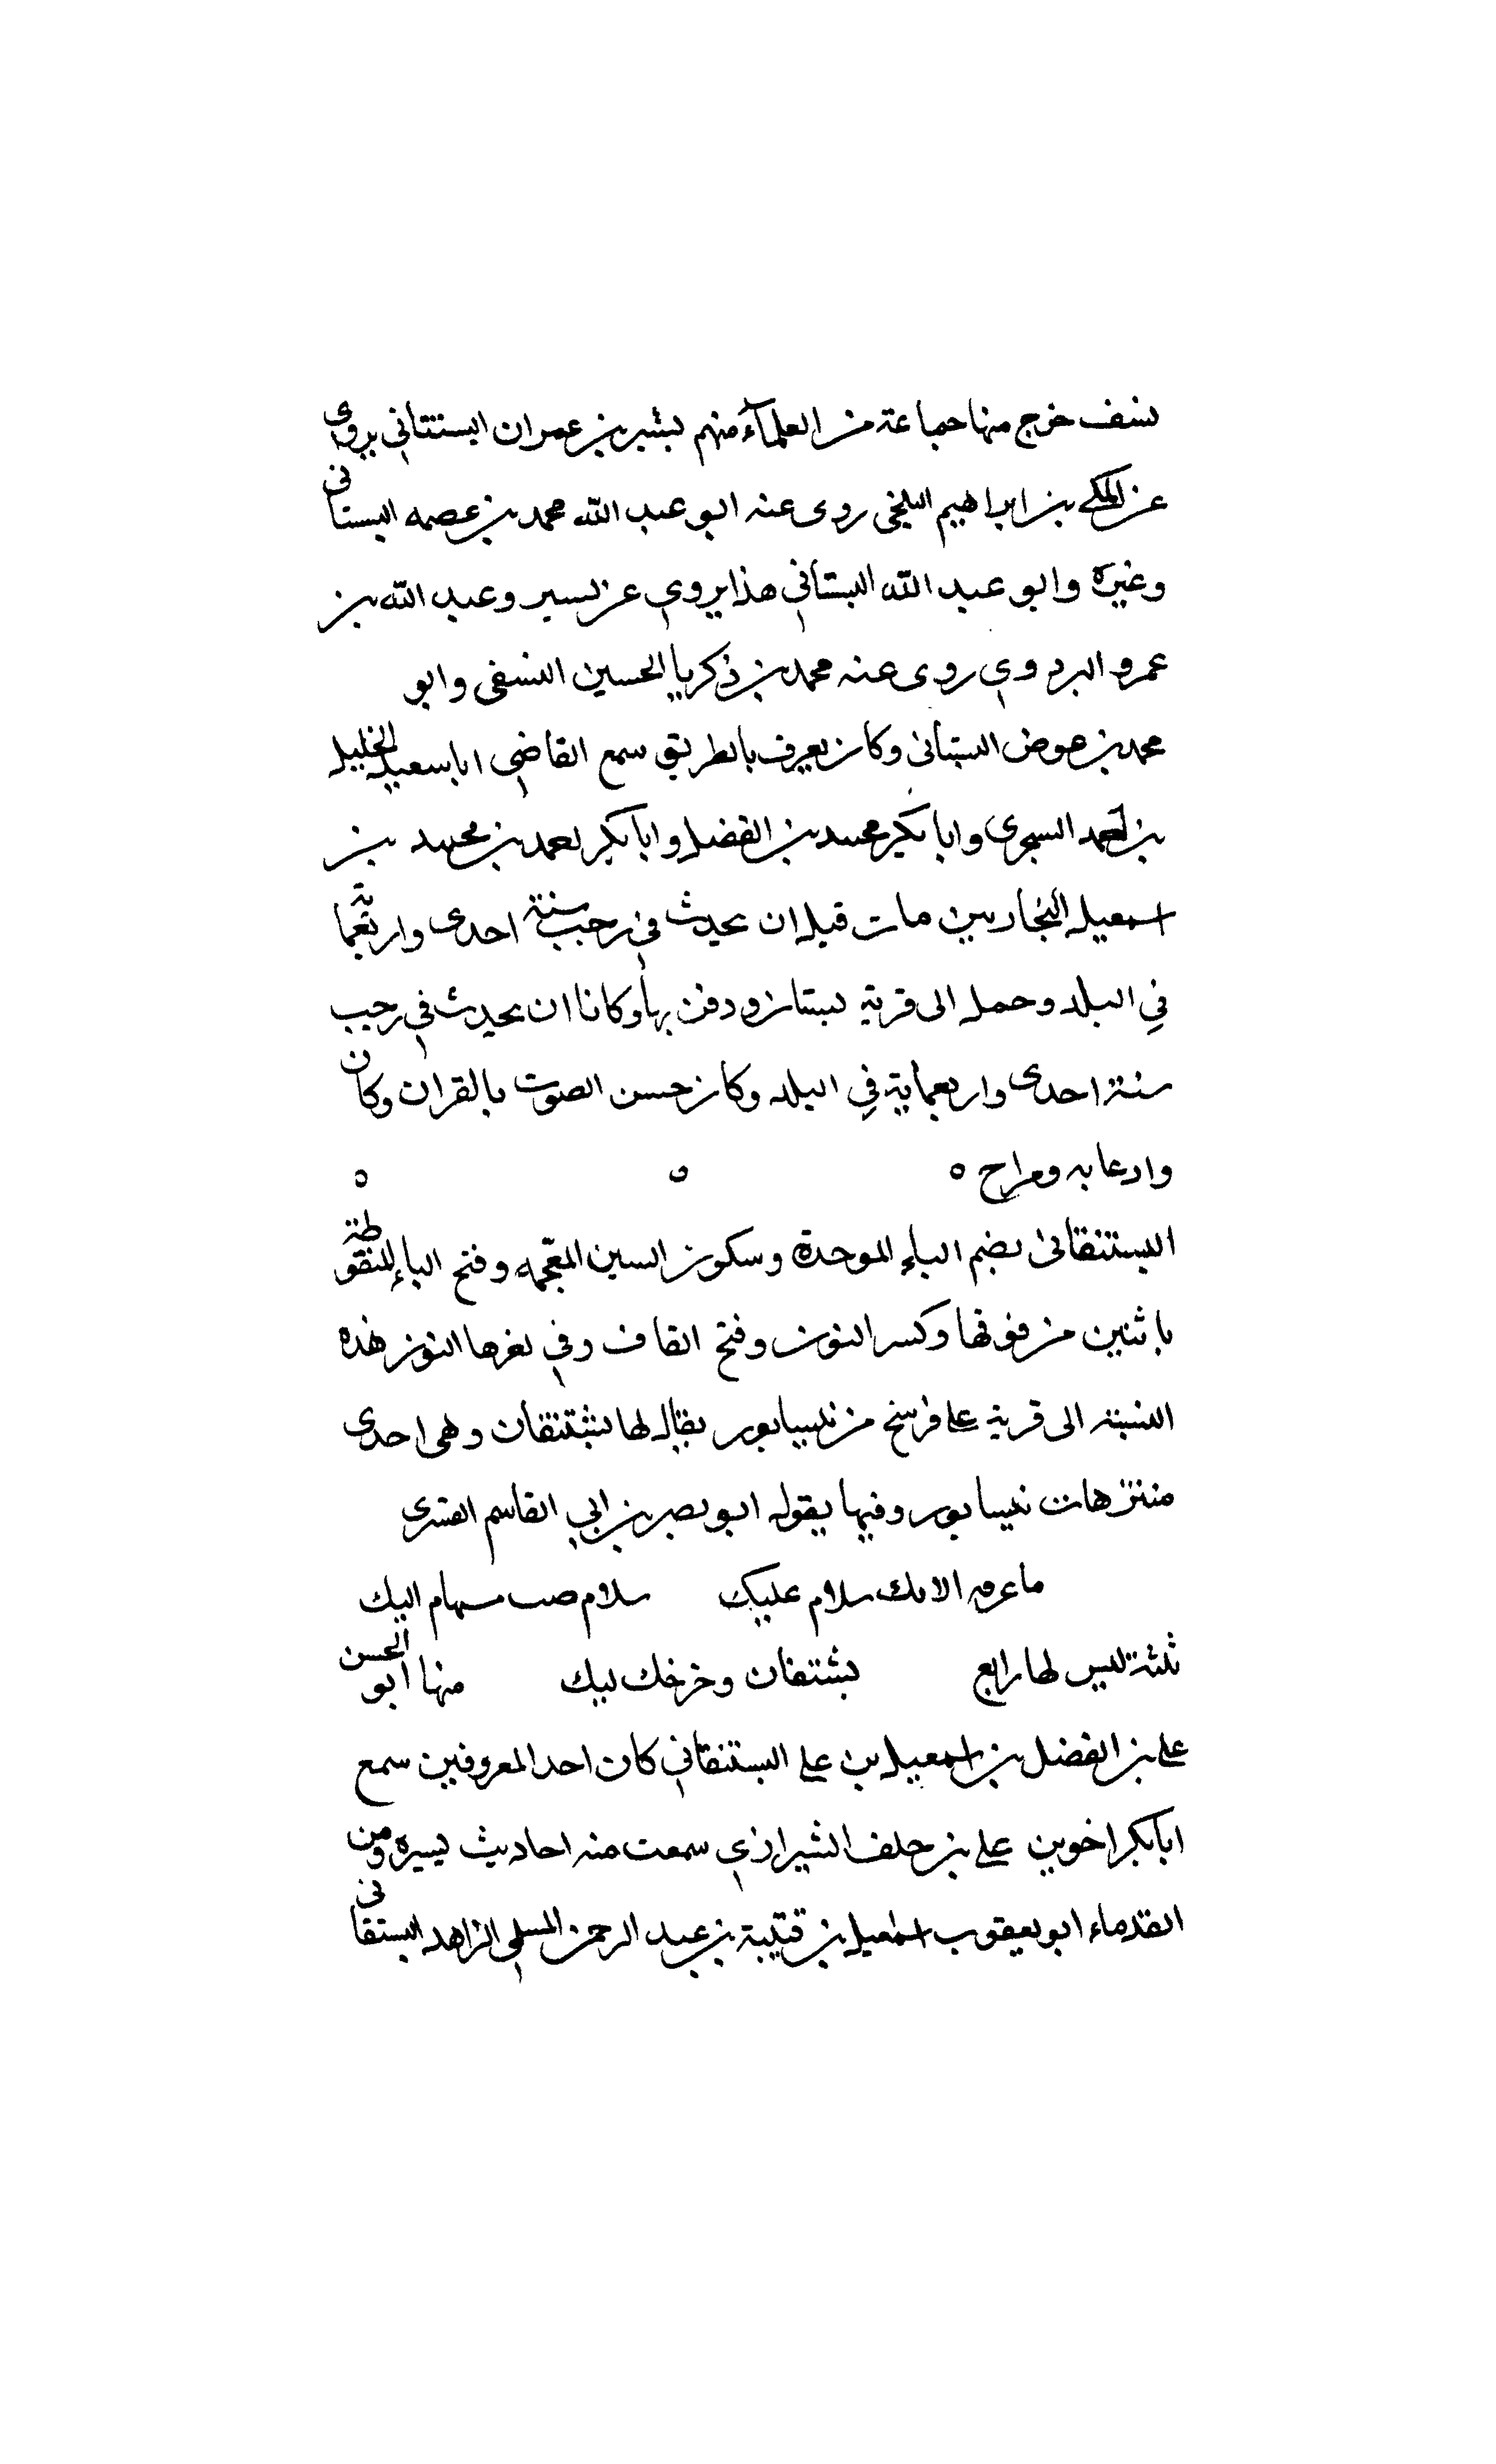 نسف خرج منها جماعة من العلمآء منهم بشير بن عمران البستاني يروى
عن المكي بن ابراهيم البلخي روى عنه ابو عبد الله محمد بن عصمه البستاني
وغيره وابو عبد الله البستاني هذا يروي عن بسير وعبد الله بن
عمرو البردوي روى عنه محمد بن زكريا الحسين النسفي وابو
محمد بن عوض البستاني وكان يعرف بالطريق سمع القاضي ابا سعيد الخليل
بن احمد السجرى وابا بكر محمد بن الفضل وابا بكر احمد بن محمد بن
اسمعيل البخاريين مات قبل ان يحدث في رجب سنة احدى واربعماية
في البلد وحمل الى قرية بستان ودفن بها وكانا ان يحدث في رجب
سنة احدى واربعماية في البلد وكان حسن الصوت بالقران وكان
وادعا به ومراح ه ه ه
البستنقاني بضم الباء الموحدة وسكون السين المعجمه وفتح الباء المنقوطة
باثنين من فوقها وكسر النون وفتح القاف وفي اخرها النون هذه
النسبة الى قرية على فرسخ من نيسابور يقال لها بشتنقان وهى احدى
منتزهات نيسابور وفيها يقول ابو نصر بن ابي القاسم القشرى
سلام عليك سلام صب اليك
ثلثة ليس لها رابع بشتنقان وخرخك ليك منها ابو الحسن
على بن الفضل بن اسمعيل بن على البستنقاني كان احد المعروفين سمع
ابابكر اخوين على بن خلف الشيرازي سمعت منه احاديث يسيره ومن
القدماء ابو يعقوب اسمعيل بن قتيبة بن عبد الرحمن السلمي الزاهد البستقاني